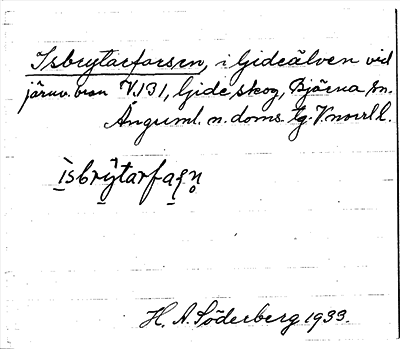 Isbrytarforsen, i Gideälven vid
järnv. bron V. 131, Gide skog, Björna sn.
Ångerml. n. doms. tg. V.norrl l.
H. A. Söderberg 1933.